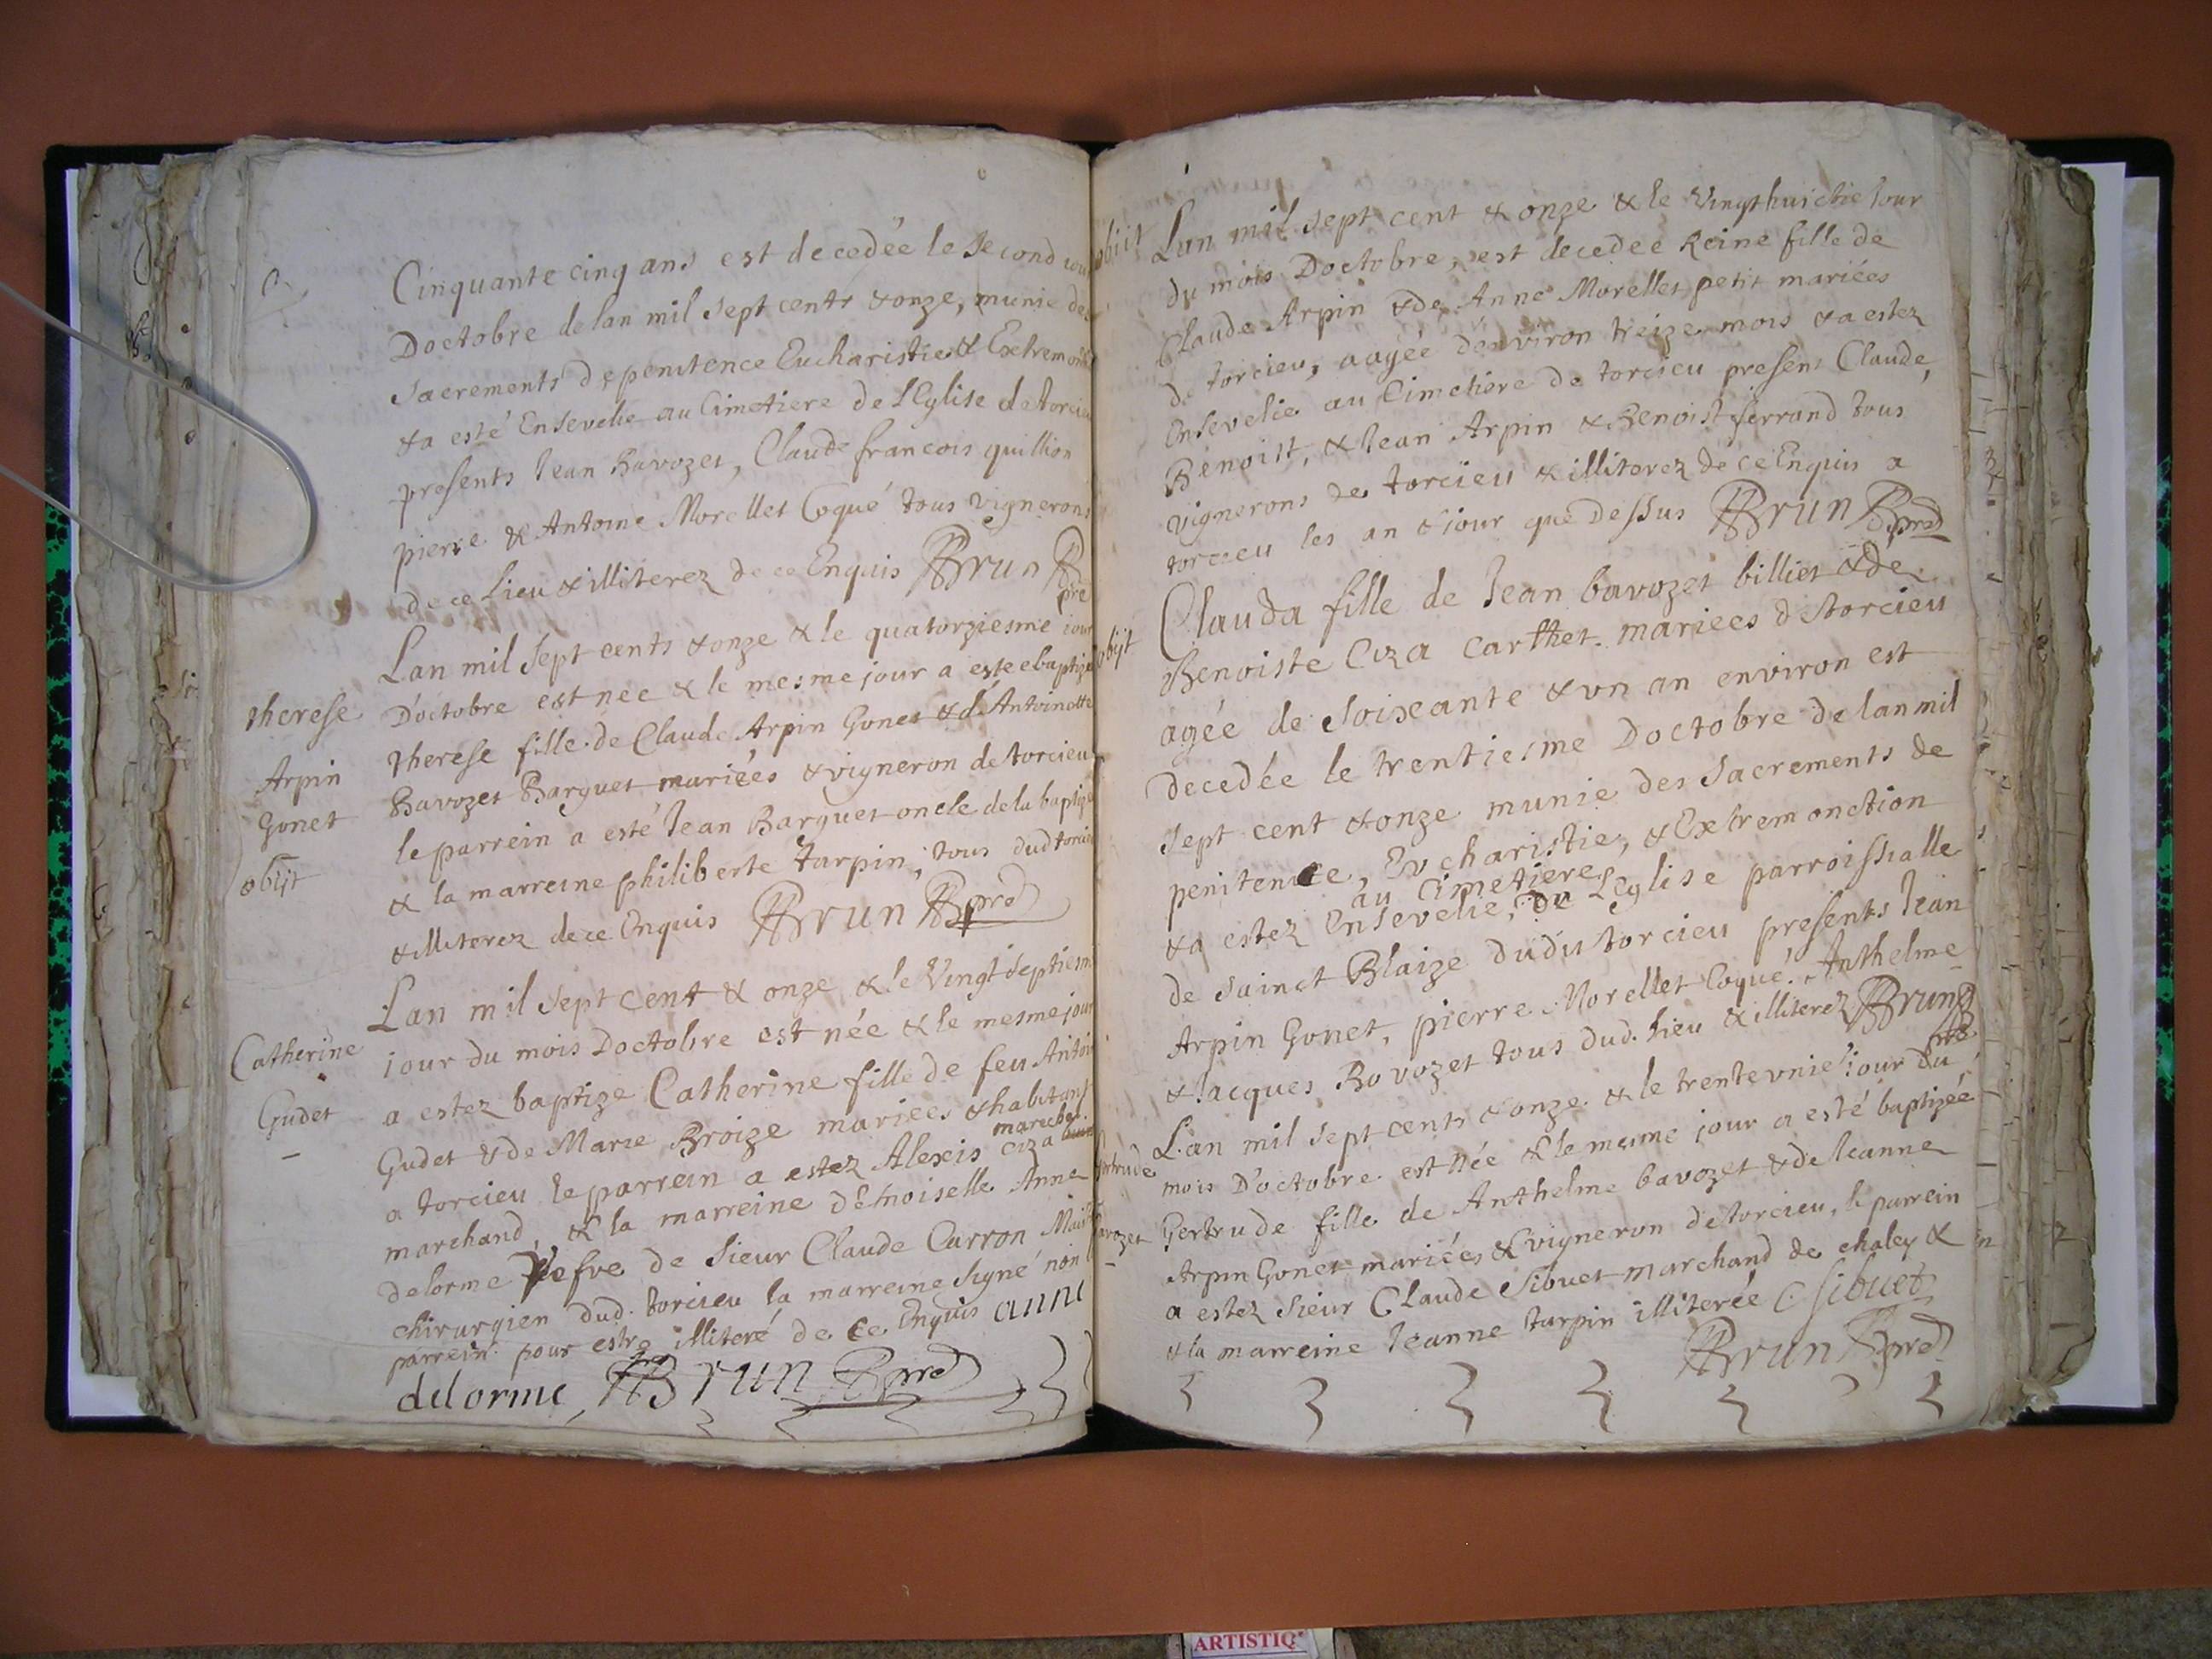 Cinquante cinq ans est decedée le second
Doctobre de lan mil sept cents & onze, munie de
Sacrements de penitence Eucharistie & Extrem
& a esté Ensevelie au Cimetiere de lEglise de torcie
presents Jean Bavozet, Claude francois quillion
pierre & Antoine Morellet Coqué tous vignerons
de ce Lieu & illiterez de ce Enquis Brun
pre
Lan mil Sept cents & onze & le quatorziesme jour
D'octobre est nee & le mesme jour a este ebaptize
therese fille de Claude Arpin Gonet & d'Antoinette
Bavozet Barguet mariées & vigneron de torcieu
le parrein a esté Jean Barguet oncle de la baptize
& la marreine philiberte tarpin, tous dud torcie
& illiterez de ce Enquis Brun pre
therese
Arpin
Gonet
obijt
Lan mil Sept cent & onze & le Vingt septiesm
jour du mois Doctobre est née & le mesme jour
a estez baptize Catherine fille de feu Antoi
Gudet & de Marie Broize mariees & habitant
marechal
a torcieu le parrein a estez Alexis Ciza
marchand, & la marreine demoiselle Anne
delorme Vefve de Sieur Claude Carron
chirurgien dud. torcieu la marreine Signé non
parrein pour estre illiteré de ce Enquis anne
delorme, Brun pre
Catherine
Gudet
obiit
Lan mil sept cent & onze & le Vingthuictie Jour
du mois Doctobre, est decedee Reine fille de
Claude Arpin & de Anne Morellet petit mariées
de torcieu, aagée denviron treize mois & a estez
Ensevelie au Cimetiere de torcieu present Claude,
Benoist, & Jean Arpin & Benoist ferrand tous
vignerons de torcieu & illiterez de ce Enquis a
torcieu les an & jour que dessus Brun pre
obijt
Clauda fille de Jean bavozet billiet & de
Benoiste Ciza Carthet mariees de torcieu
agée de soixante & vn an environ est
decedée le trentiesme Doctobre de lan mil
sept cent & onze munie des Sacrements de
penitence, Eucharistie, & Extrem onction
au Cimetiere
& a estez Ensevelie, de LEglise parroissialle
de Sainct Blaize dudit torcieu presents Jean
Arpin Gonet, pierre Morellet Coqué, Anthelme
& Jacques Bovozet tous dud. lieu & illiterez Brun
pre
Lan mil sept cents & onze & le trentevnie jour du
mois D'octobre est née & le mesme jour a esté baptizée
Gertrude fille de Anthelme bavozet & de Jeanne
Arpin Gonet mariées & vigneron de torcieu, le parrein
a estez Sieur Claude Sibuet marchand de chaley &
& la marreine Jeanne tarpin illiterée C sibuet
Brun pre
ARTISTIQ